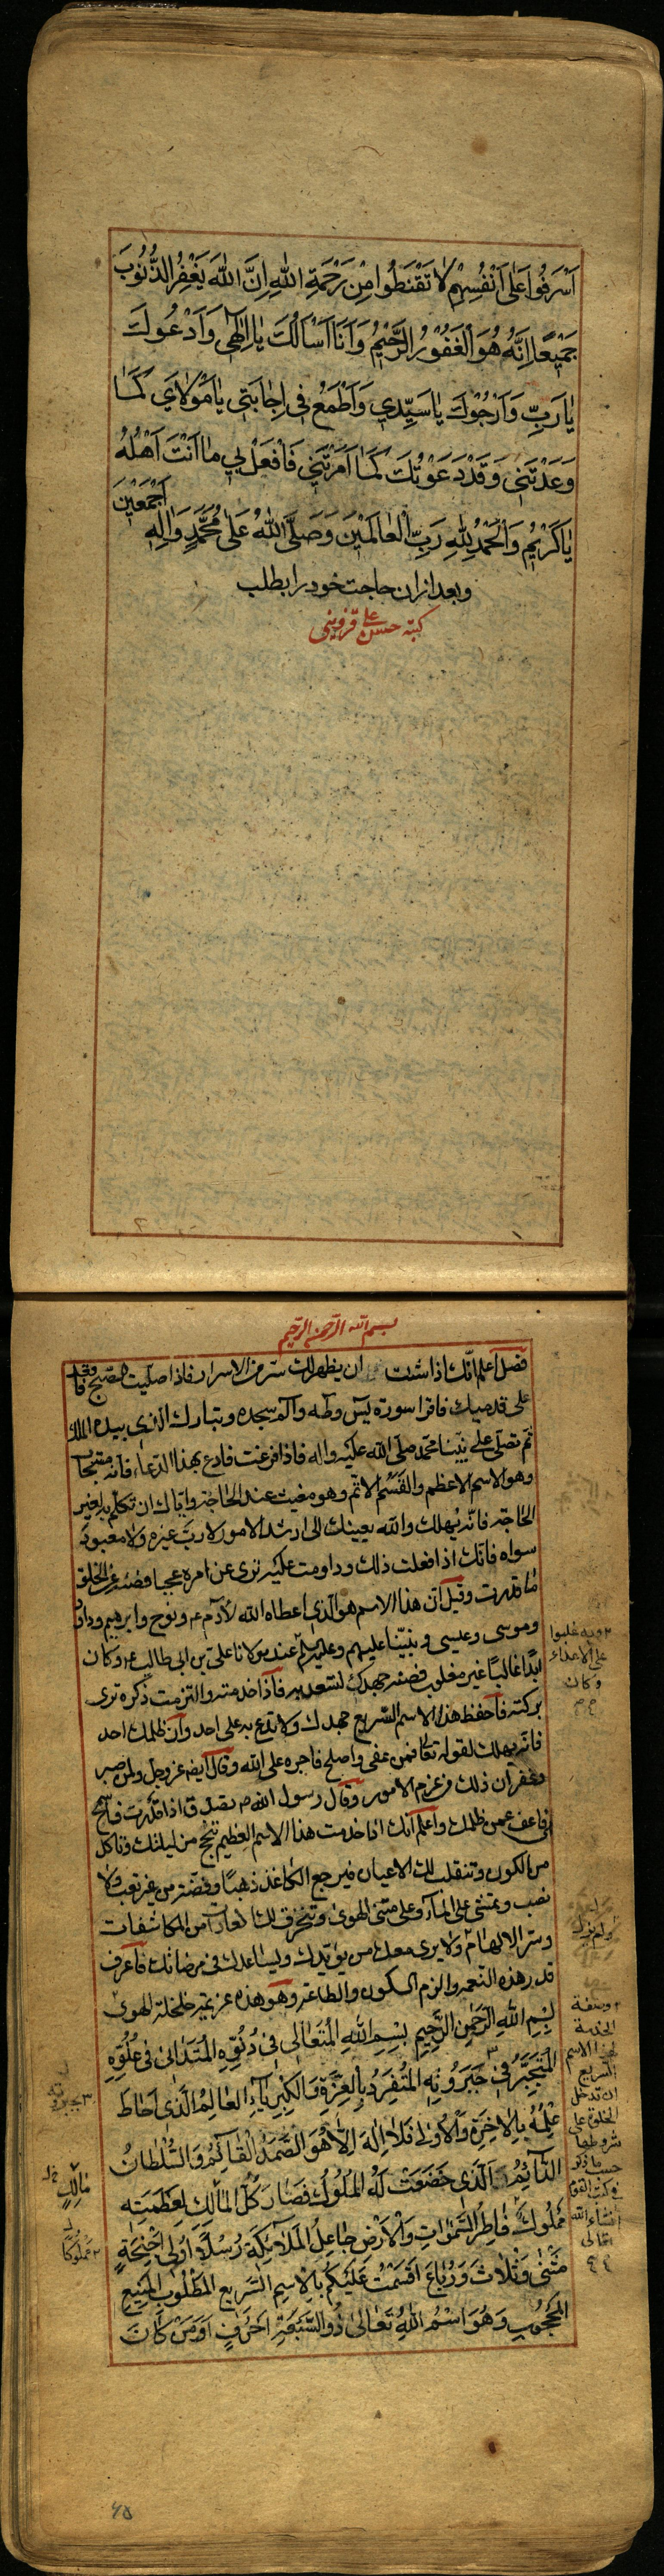 اَسْرَفُوا عَلٰى اَنْفُسِهِمْ لَا تَقْنَطُوا مِنْ رَحْمَةِ اللّٰهِ اِنَّ اللّٰهَ يَغْفِرُ الذُّنُوبَ
جَمِيْعًا اِنَّهُ هُوَ الْغَفُوْرُ الرَّحِيْمُ وَاَنَا اَسْاَلُكَ يَا اِلٰهِي وَاَدْعُوكَ
يَا رَبِّ وَاَرْجُوْكَ يَا سَيِّدِي وَاَطْمَعُ فِي اِجَابَتِي يَا مَوْلَايَ كَمَا
وَعَدْتَنِي وَقَدْ دَعَوْتُكَ كَمَا اَمَرْتَنِي فَافْعَلْ بِي مَا اَنْتَ اَهْلُهُ
يَا كَرِيْمُ وَالْحَمْدُ لِلّٰهِ رَبِّ الْعَالَمِيْنَ وَصَلَّى اللّٰهُ عَلٰى مُحَمَّدٍ وَاٰلِهِ اَجْمَعِيْنَ
وبعد ازان حاجت خود را بطلب
كتبه حسن علي قزويني
بسم الله الرحمن الرحيم
فصل اعلم انك اذا شئت ان يظهر لك سر من الاسرار فاذا صليت الصبح وقف
على قدميك فاقرا سورة يس وطه والم سجده وتبارك الذي بيده الملك
ثم تصلى على نبينا محمد صلى الله عليه واله فاذا فرغت فادع بهذا الدعاء فانه مستجاب
وهو الاسم الاعظم والقسم الاتم وهو مغيث عند الحاجة واياك ان تكلم به لغير
الحاجة فانه يهلك والله يعينك الى ارشد الامور لا رب غيره ولا معبود
سواه فانك اذا فعلت ذلك وداومت عليه ترى عن امره عجبا فصنه عن الخلق
ما قدرت وقيل ان هذا الاسم هو الذي اعطاه الله لآدم ع ونوح وابرهيم وداود
وموسى وعيسى ونبينا عليهم وعليه السلم عند مولانا علي بن ابي طالب ع وكان
ابدا غالبا غير مغلوب فصنه جهدك لتسعد به فاذا خدمته والتزمت ذكره ترى
بركته فاحفظ هذا الاسم السريع جهدك ولا تدع به على احد وان ظلمك احد
فانه يهلك لقوله تعالى فمن عفى واصلح فاجره على الله وقال ايضا عز وجل ولمن صبر
وغفر ان ذلك من عزم الامور وقال رسول الله ص
فاعف عمن ظلمك واعلم انك اذا خدمت هذا الاسم العظيم تنجح من ليلتك وتاكل
من الكون وتنقلب لك الاعيان فيرجع الكاغذ ذهبا وفضة من غير تعب ولا
نصب وتمشى على الماء وعلى متن الهوى وتنخرق لك العادات من المكاشفات
وسر الالهام ولا يرى معك من يؤيدك ويساعدك في مرضاتك فاعرف
قدر هذه النعمة والزم السكون والطاعة وهو هذه عزيمة خلخلة الهوى
بِسْمِ اللّٰهِ الرَّحْمٰنِ الرَّحِيمِ بِسْمِ اللّٰهِ الْمُتَعَالِي فِي دُنُوِّهِ الْمُتَدَانِي فِي عُلُوِّهِ
الْمُتَجَبِّرُ فِي جَبَرُوتِهِ الْمُتَفَرِّدُ بِالْعِزَّةِ وَالْكِبْرِيَاءِ الْعَالِمُ الَّذِي اَحَاطَ
عِلْمُهُ بِالْاٰخِرَةِ وَالْاُولٰى فَلَا اِلٰهَ اِلَّا هُوَ الصَّمَدُ الْقَائِمُ وَالسُّلْطَانُ
الدَّائِمُ الَّذِي خَضَعَتْ لَهُ الْمُلُوكُ فَصَارَ كُلُّ الْمَالِكِ لِعَظَمَتِهِ
مَمْلُوكٌ فَاطِرُ السَّمٰوَاتِ وَالْاَرْضِ جَاعِلُ الْمَلٰائِكَةِ رُسُلًا اُولِي اَجْنِحَةٍ
مَثْنٰى وَثُلَاثَ وَرُبَاعَ اَقْسَمْتُ عَلَيْكُمْ بِالْاِسْمِ السَّرِيعِ الْمَطْلُوبِ الْمَنِيعِ
الْمَحْجُوبِ وَهُوَ اسْمُ اللّٰهِ تَعَالٰى ذُو السَّبْعَةِ اَحْرُفٍ اَوَمَنْ كَانَ
وبه غلبوا
على الاعداء
وكان
وصفة
الخدمة
لهذا الاسم
السريع
ان تدخل
الخلوة على
شروطها
حسب ما ذكر
في كتب القوم
انشاء الله
تعالى
مالك
مملوكا
٤٥